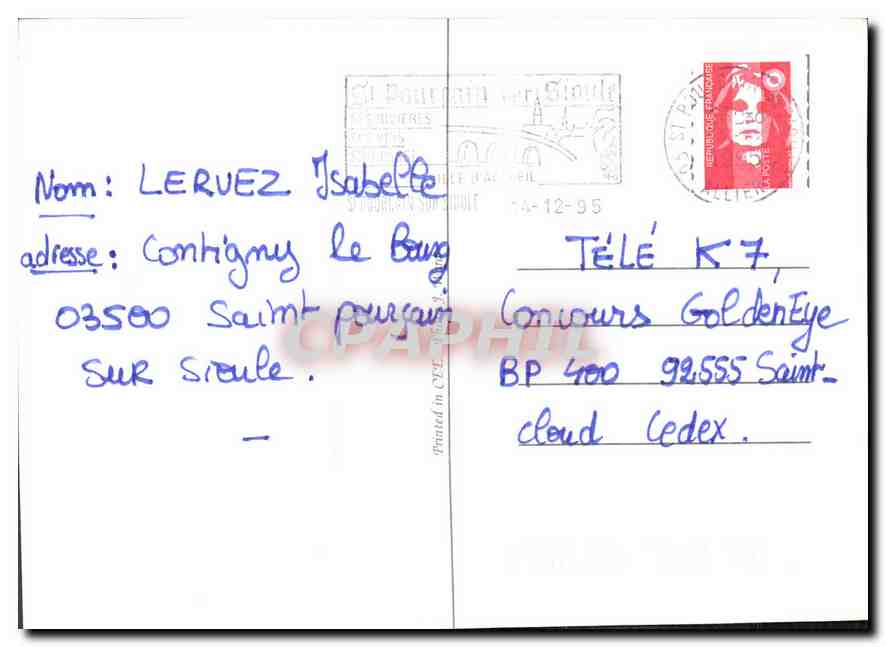 St Pourçain sur Sioule
SES RIVIERES
VILLE D'ACCUEIL
ST POURCAIN SUR SIOULE 14-12-95
REPUBLIQUE FRANÇAISE
LA POSTE
ALLIER
Nom: LERVEZ Isabelle
adresse: Contigny le Bourg
03500 Saint pourçain
SUR Sioule.
TÉLÉ K7,
Concours GoldenEye
BP 400 92555 Saint-
cloud Cedex.
CPAPHIL
Printed in CEE